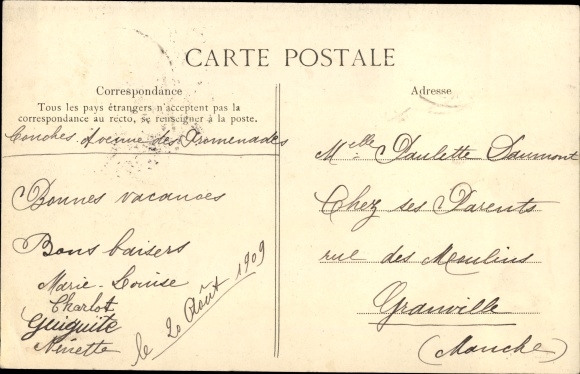 CARTE POSTALE
Correspondance
Tous les pays étrangers n'acceptent pas la
correspondance au recto, se renseigner à la poste.
Conches Avenue des Promenades
Bonnes vacances
Bons baisers
Marie-Louise
Charlot
Guiguite
Ninette
le 20 Août 1909
Adresse
Melle Paulette Daumont
Chez ses Parents
rue des Moulins
Granville
(Manche)